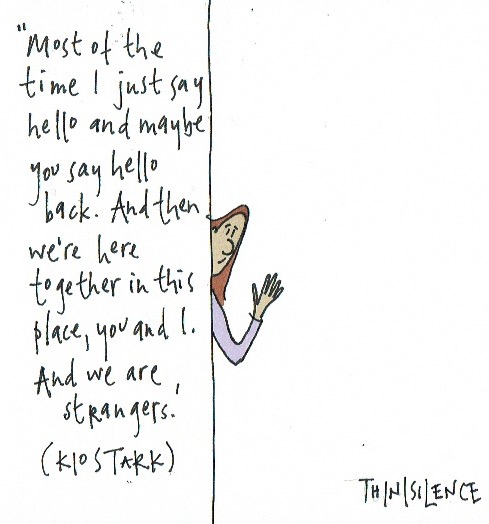 "Most of the
time I just say
hello and maybe
you say hello
back. And then
we're here
together in this
place, you and I.
And we are
strangers.'
(KIO STARK)
THINSILENCE